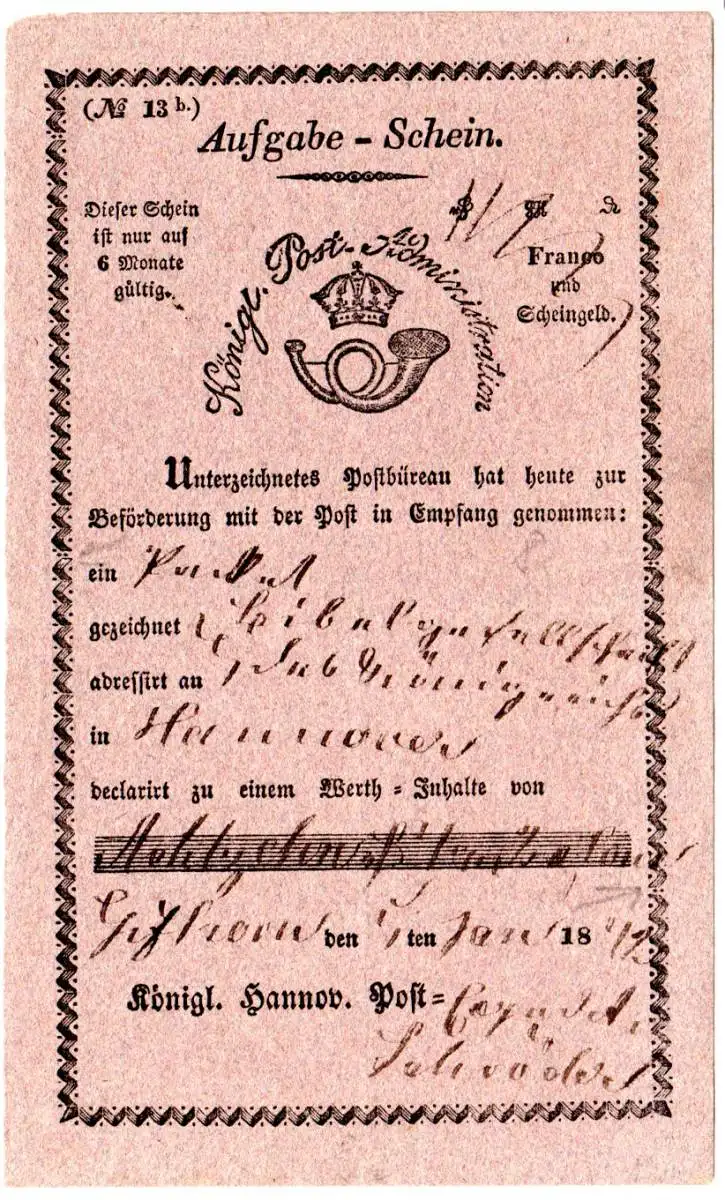 (№ 13 b.)
Aufgabe - Schein.
Dieser Schein
ist nur auf
6 Monate
gültig.
Franco
und
Scheingeld.
Königl. Post-Administration
Unterzeichnetes Postbüreau hat heute zur
Beförderung mit der Post in Empfang genommen:
ein Packet
gezeichnet Bibelgesellschaft
adressirt an des Königreichs
in Hannover
declarirt zu einem Werth-Inhalte von
Gifhorn den ten Jan 18 42
Königl. Hannov. Post=
Schröder